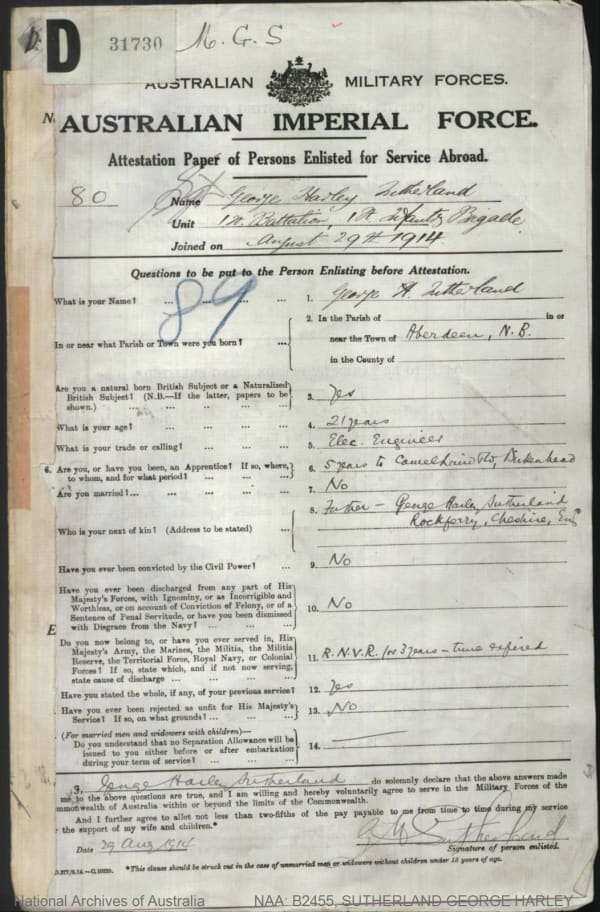 D 31730 M.G.S
AUSTRALIAN MILITARY FORCES.
AUSTRALIAN IMPERIAL FORCE.
Attestation Paper of Persons Enlisted for Service Abroad.
80 Name George Harley Sutherland
Unit 1st Battalion, 1st Infantry Brigade
Joined on August 29th 1914
Questions to be put to the Person Enlisting before Attestation.
89
What is your Name? ... ... ... ... 1. George H. Sutherland
2. In the Parish of in or
In or near what Parish or Town were you born? ... near the Town of Aberdeen, N.B.
in the County of
Are you a natural born British Subject or a Naturalized
British Subject? (N.B.—If the latter, papers to be
shown.) ... ... ... ... 3. Yes
What is your age? ... ... ... ... 4. 21 years
What is your trade or calling? ... ... ... 5. Elec. Engineer
6. Are you, or have you been, an Apprentice? If so, where,
to whom, and for what period? ... ... ... 6. 5 years to Birkenhead
Are you married?... ... ... ... ... 7. No
8. Father – George Harley Sutherland
Who is your next of kin? (Address to be stated) ... Rockferry, Cheshire, Eng
Have you ever been convicted by the Civil Power? ... 9. No
Have you ever been discharged from any part of His
Majesty's Forces, with Ignominy, or as Incorrigible and
Worthless, or on account of Conviction of Felony, or of a
Sentence of Penal Servitude, or have you been dismissed
with Disgrace from the Navy? ... ... ... 10. No
E
Do you now belong to, or have you ever served in, His
Majesty's Army, the Marines, the Militia, the Militia
Reserve, the Territorial Force, Royal Navy, or Colonial
Forces? If so, state which, and if not now serving,
state cause of discharge ... ... ... ... 11. R.N.V.R. for 3 years – time expired
Have you stated the whole, if any, of your previous service? 12. Yes
Have you ever been rejected as unfit for His Majesty's
Service? If so, on what grounds? ... ... ... 13. No
(For married men and widowers with children)—
Do you understand that no Separation Allowance will be
issued to you either before or after embarkation
during your term of service? ... ... ... 14. —
I, George Harley Sutherland do solemnly declare that the above answers made
me to the above questions are true, and I am willing and hereby voluntarily agree to serve in the Military Forces of the
mmonwealth of Australia within or beyond the limits of the Commonwealth.
And I further agree to allot not less than two-fifths of the pay payable to me from time to time during my service
the support of my wife and children.*
G H Sutherland
Date 29 Aug 1914 Signature of person enlisted.
*This clause should be struck out in the case of unmarried men or widowers without children under 18 years of age.
National Archives of Australia NAA: B2455, SUTHERLAND GEORGE HARLEY